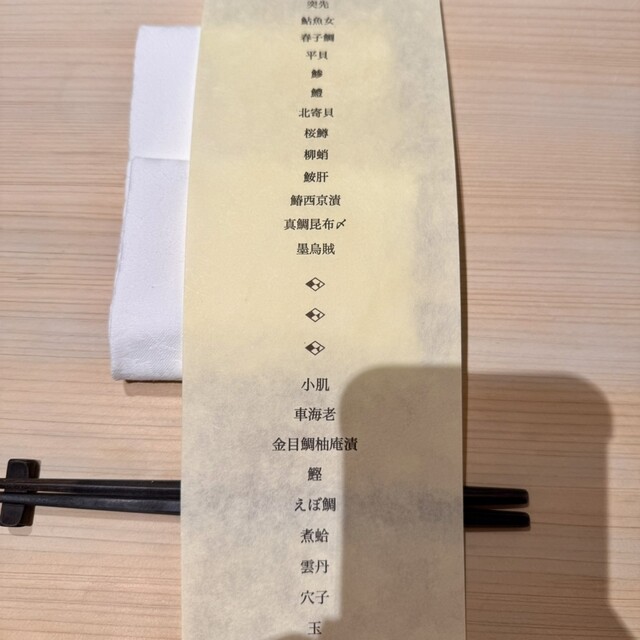 突先
鮎魚女
春子鯛
平貝
北寄貝
桜鱒
柳蛸
鮟肝
鰆西京漬
真鯛昆布〆
墨烏賊
小肌
車海老
金目鯛柚庵漬
鰹
えぼ鯛
煮蛤
雲丹
穴子
玉